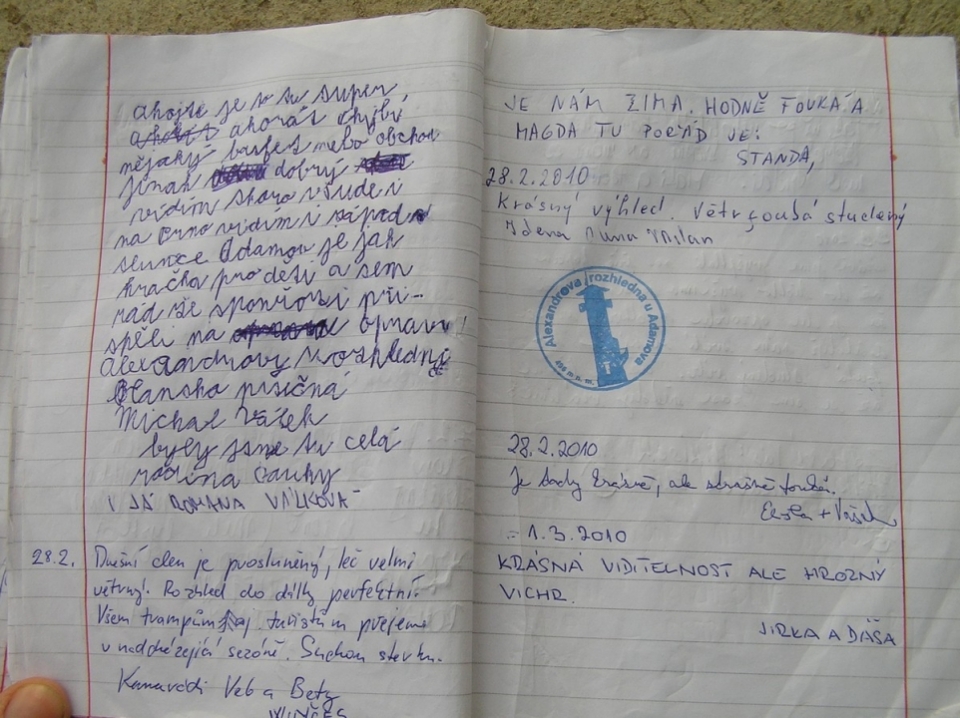 ahojte je to tu super,
ahorát chybí
nějaký bufet nebo obchod
jinak dobrý
vidím skoro všude i
na Brno vidím i západ
slunce Adamov je jak
hračka pro děti a sem
rád že sponzoři při-
spěli na opravu
Alexandrovy rozhledni
Blansko písečná
Michal Válek
byly jsme tu celá
rodina
I JÁ ROMANA VÁLKOVÁ
28.2. Dnešní den je prosluněný, leč velmi
větrný! Rozhled do dálky perfektní.
Všem trampům aj turistům přejeme
v nadcházející sezóně. Suchou stezku.
Kamarádi Veb a Bety
JE NÁM ZIMA. HODNĚ FOUKÁ A
MAGDA TU POŘÁD JE!
STANDA,
28.2.2010
Krásný výhled. Větr foubá studený
Zdena Milan
Alexandrova rozhledna u Adamova
496 m n. m.
28.2.2010
Je tady krásně, ale strašně fouká.
- 1.3.2010
KRÁSNÁ VIDITELNOST ALE HROZNÝ
VICHR.
JIRKA A DÁŠA